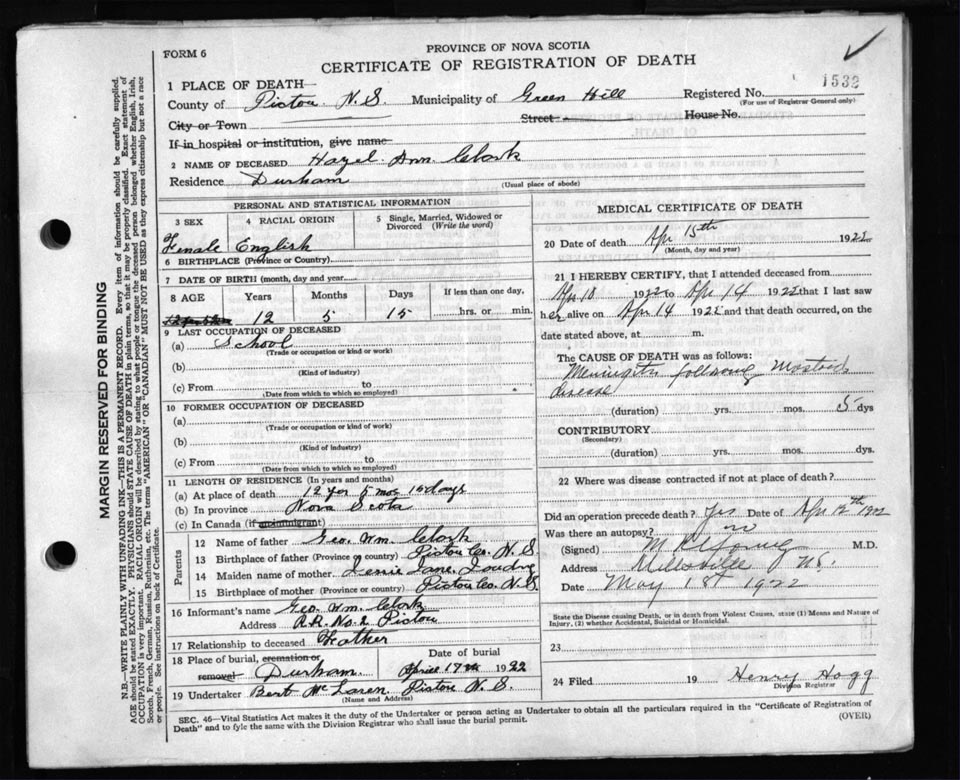 FORM 6
PROVINCE OF NOVA SCOTIA
CERTIFICATE OF REGISTRATION OF DEATH
1532
1 PLACE OF DEATH
County of Pictou N.S. Municipality of Green Hill Registered No.
(For use of Registrar General only)
City or Town Street House No.
If in hospital or institution, give name
2 NAME OF DECEASED Hazel Ann Clark
Residence Durham
(Usual place of abode)
PERSONAL AND STATISTICAL INFORMATION
3 SEX 4 RACIAL ORIGIN 5 Single, Married, Widowed or Divorced (Write the word)
Female English
6 BIRTHPLACE (Province or Country)
7 DATE OF BIRTH (month, day and year)
8 AGE Years Months Days If less than one day,
12 5 15 hrs. or min.
9 LAST OCCUPATION OF DECEASED
(a) School
(Trade or occupation or kind or work)
(b)
(Kind of industry)
(c) From to
(Date from which to which so employed)
10 FORMER OCCUPATION OF DECEASED
(a)
(Trade or occupation or kind of work)
(b)
(Kind of industry)
(c) From to
(Date from which to which so employed)
11 LENGTH OF RESIDENCE (In years and months)
(a) At place of death 12 yrs 5 mos 15 days
(b) In province Nova Scotia
(c) In Canada (if an immigrant)
Parents
12 Name of father Geo. Wm. Clark
13 Birthplace of father (Province or country) Pictou Co. N.S.
14 Maiden name of mother Jane
15 Birthplace of mother (Province or country) Pictou Co. N.S.
16 Informant's name Geo. Wm. Clark
Address R.R. No. 2 Pictou
17 Relationship to deceased Father
18 Place of burial, cremation or removal Durham Date of burial April 17th 1922
19 Undertaker Bert McLaren Pictou N.S.
(Name and Address)
MEDICAL CERTIFICATE OF DEATH
20 Date of death Apr 15th 1922
(Month, day and year)
21 I HEREBY CERTIFY, that I attended deceased from
Apr 10 1922 to Apr 14 1922 that I last saw
her alive on Apr 14 1922 and that death occurred, on the
date stated above, at m.
The CAUSE OF DEATH was as follows:
Meningitis following Mastoid
disease
(duration) yrs. mos. 5 dys
CONTRIBUTORY
(Secondary)
(duration) yrs. mos. dys.
22 Where was disease contracted if not at place of death?
Did an operation precede death? Yes Date of Apr 12th 1922
Was there an autopsy? no
(Signed) Young M.D.
Address Millsville N.S.
Date May 1st 1922
State the Disease causing Death, or in death from Violent Causes, state (1) Means and Nature of
Injury, (2) whether Accidental, Suicidal or Homicidal.
23
24 Filed 19 Henry Hogg
Division Registrar
SEC. 46—Vital Statistics Act makes it the duty of the Undertaker or person acting as Undertaker to obtain all the particulars required in the "Certificate of Registration of
Death" and to fyle the same with the Division Registrar who shall issue the burial permit.
(OVER)
MARGIN RESERVED FOR BINDING
N.B.—WRITE PLAINLY WITH UNFADING INK—THIS IS A PERMANENT RECORD. Every item of information should be carefully supplied.
AGE should be stated EXACTLY. PHYSICIANS should STATE CAUSE OF DEATH in plain terms, so that it may be properly classified. Exact statement of
OCCUPATION is very important. RACIAL ORIGIN will be described by stating to what people or tongue the deceased person belonged whether English, Irish,
Scotch, French, German, Russian, Ruthenian, etc. The terms "AMERICAN" OR "CANADIAN" MUST NOT BE USED as they express citizenship but not a race
or people. See instructions on back of Certificate.